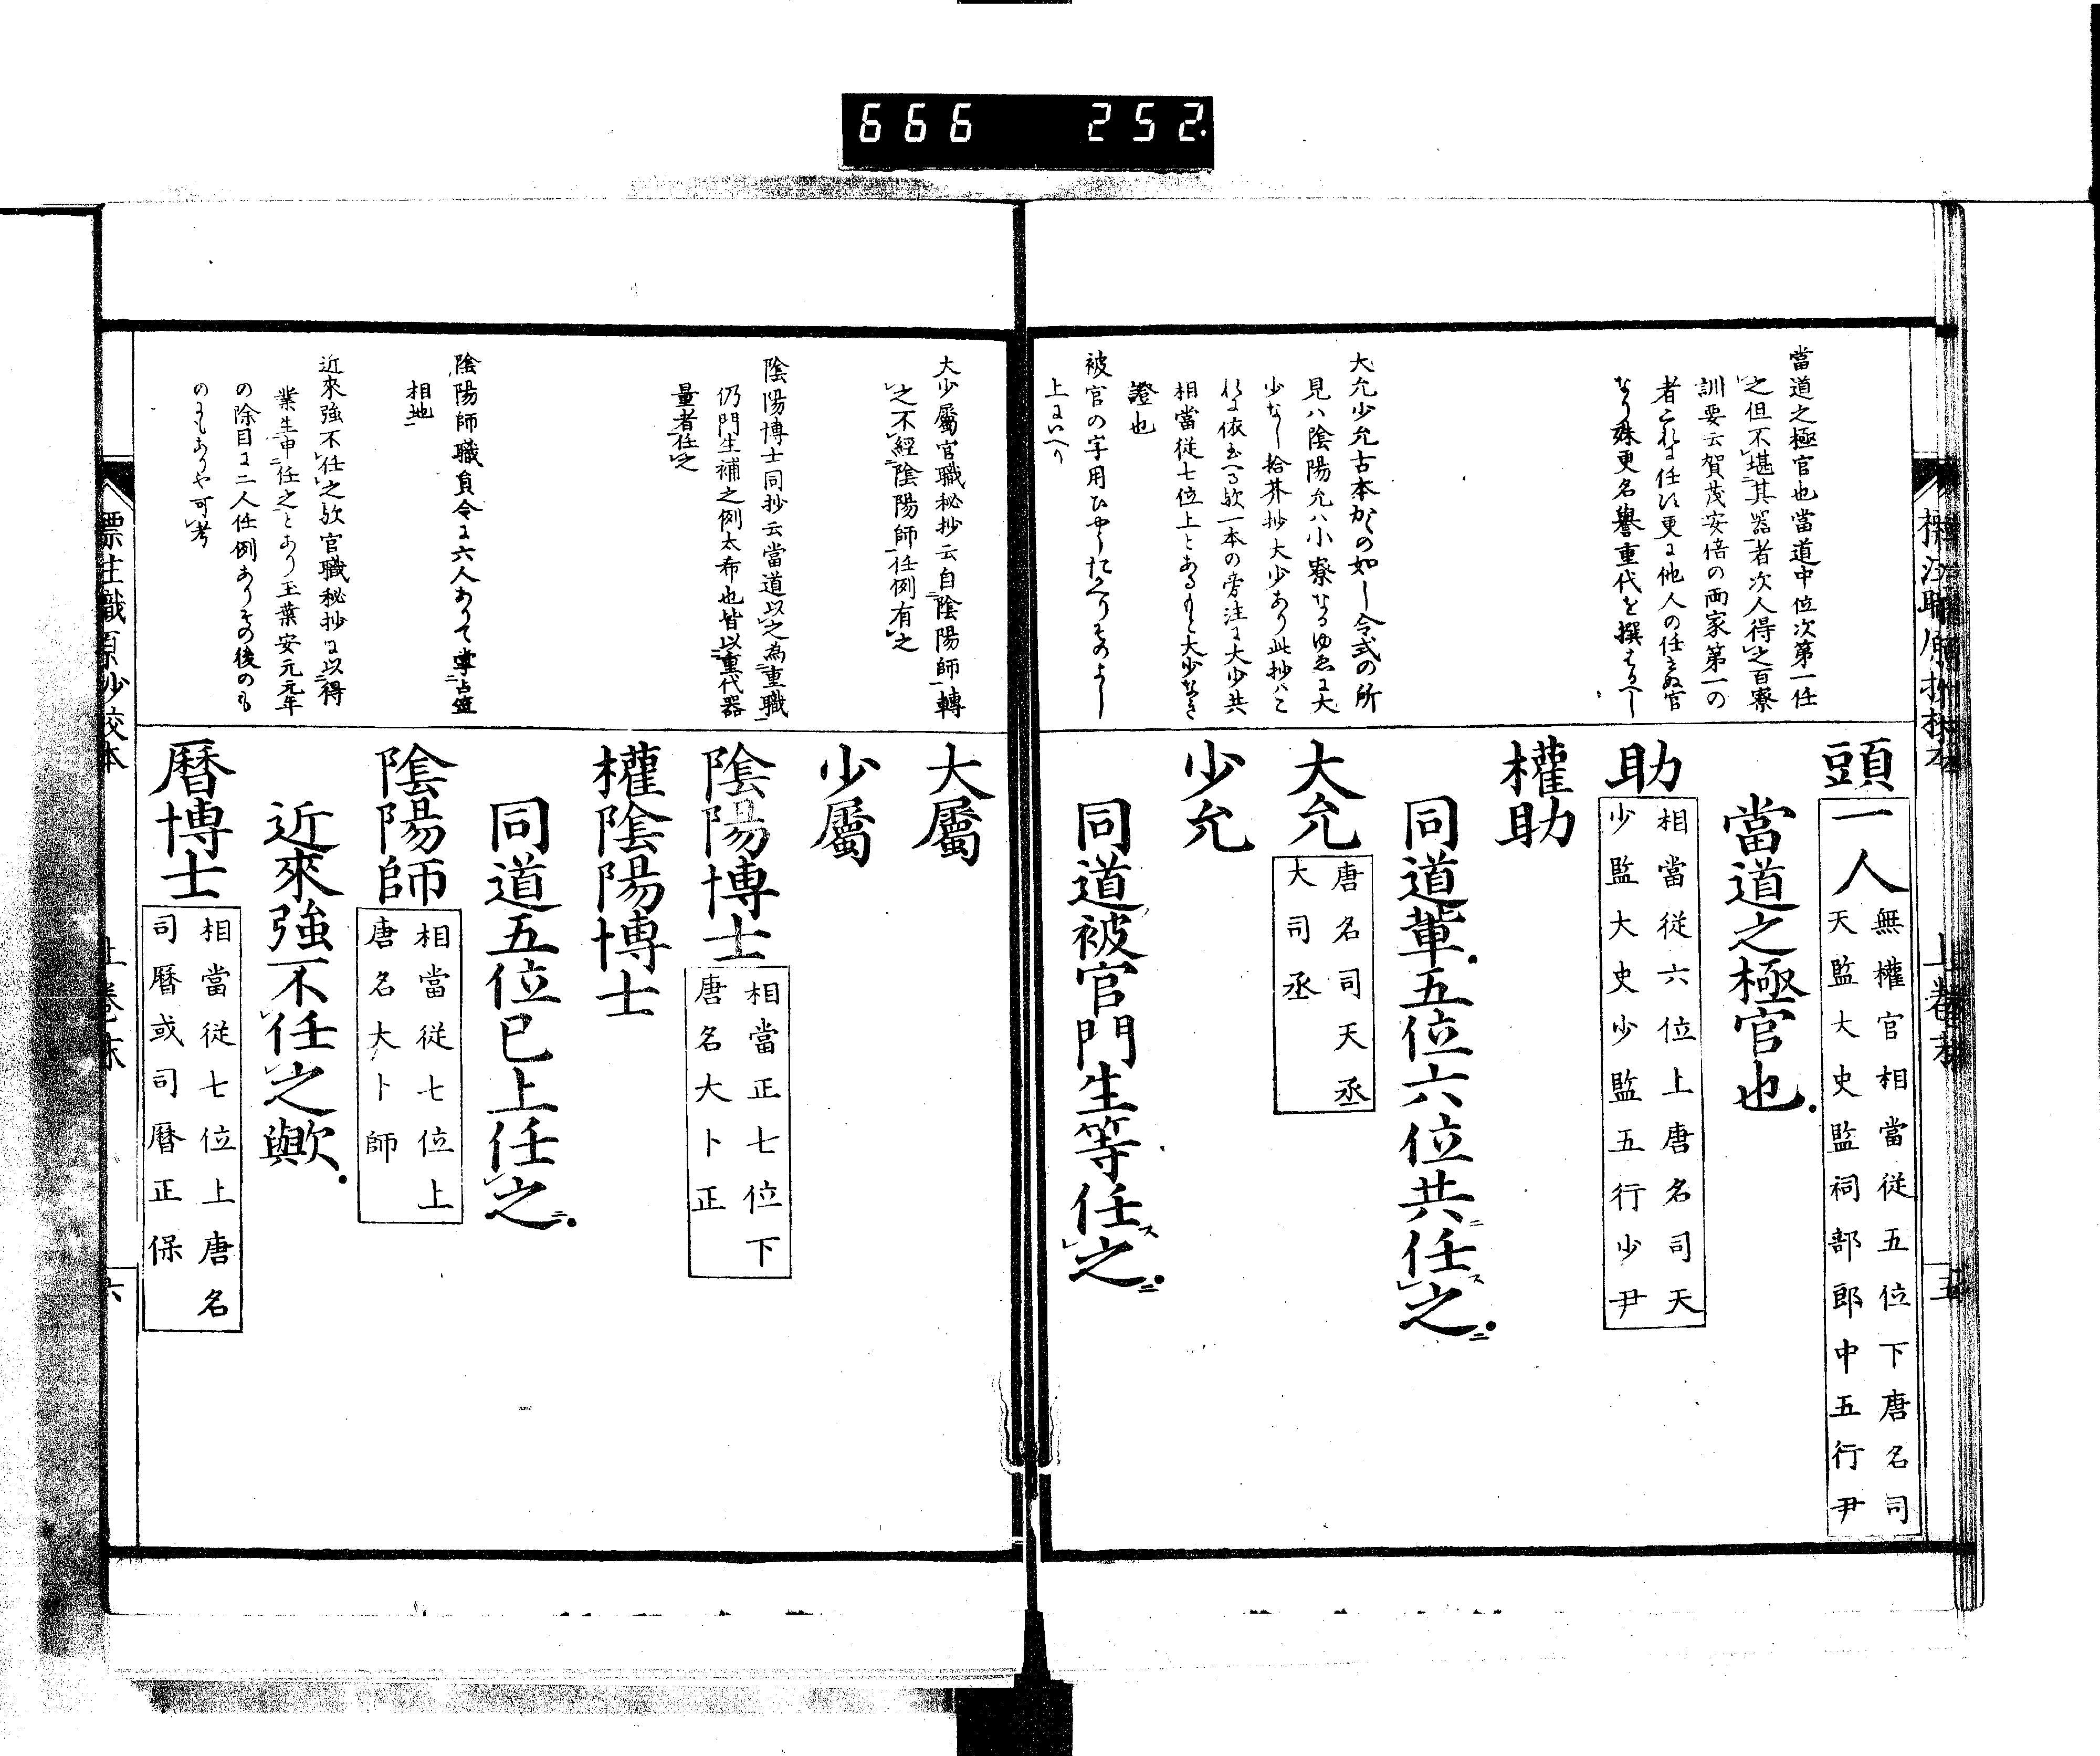 666 252
當道之極官也當道中位次第一任
之但不堪其器者次人得之百寮
訓要云賀茂安倍の両家第一の
者これに任ず更に他人の任せぬ官
なり殊更名譽重代を撰
大允少允古本かくの如し令式の所
見ハ陰陽允ハ小寮なるゆゑに大
少なし拾芥抄大少あり此抄ハこ
相當従七位上とある
證也
被官の字用ひ
上にいへり
頭一人
無權官相當従五位下唐名司
天監大史監祠部郎中五行尹
當道之極官也
助
相當従六位上唐名司天
少監大史少監五行少尹
權助
同道輩五位六位共ニ任ス之ニ
大允
唐名司天丞
大司丞
少允
同道被官門生等任ス之ニ
上巻末
五
大少屬官職秘抄云自陰陽師轉
之不經陰陽師任例有之
陰陽博士同抄云當道以之為重職
仍門生補之例太希也皆以重代器
量者任之
陰陽師職員令に六人ありて掌占筮
相地
近來強不任之歟官職秘抄に以得
業生申任之とあり玉葉安元元年
の除目に二人任例ありその後のも
のにもありや可考
大屬
少屬
陰陽博士
相當正七位下
唐名大卜正
權陰陽博士
同道五位已上任之ニ
陰陽師
相當従七位上
唐名大卜師
近來強不任之歟
暦博士
相當従七位上唐名
司暦或司暦正保
標注職原抄校本
上巻末
六